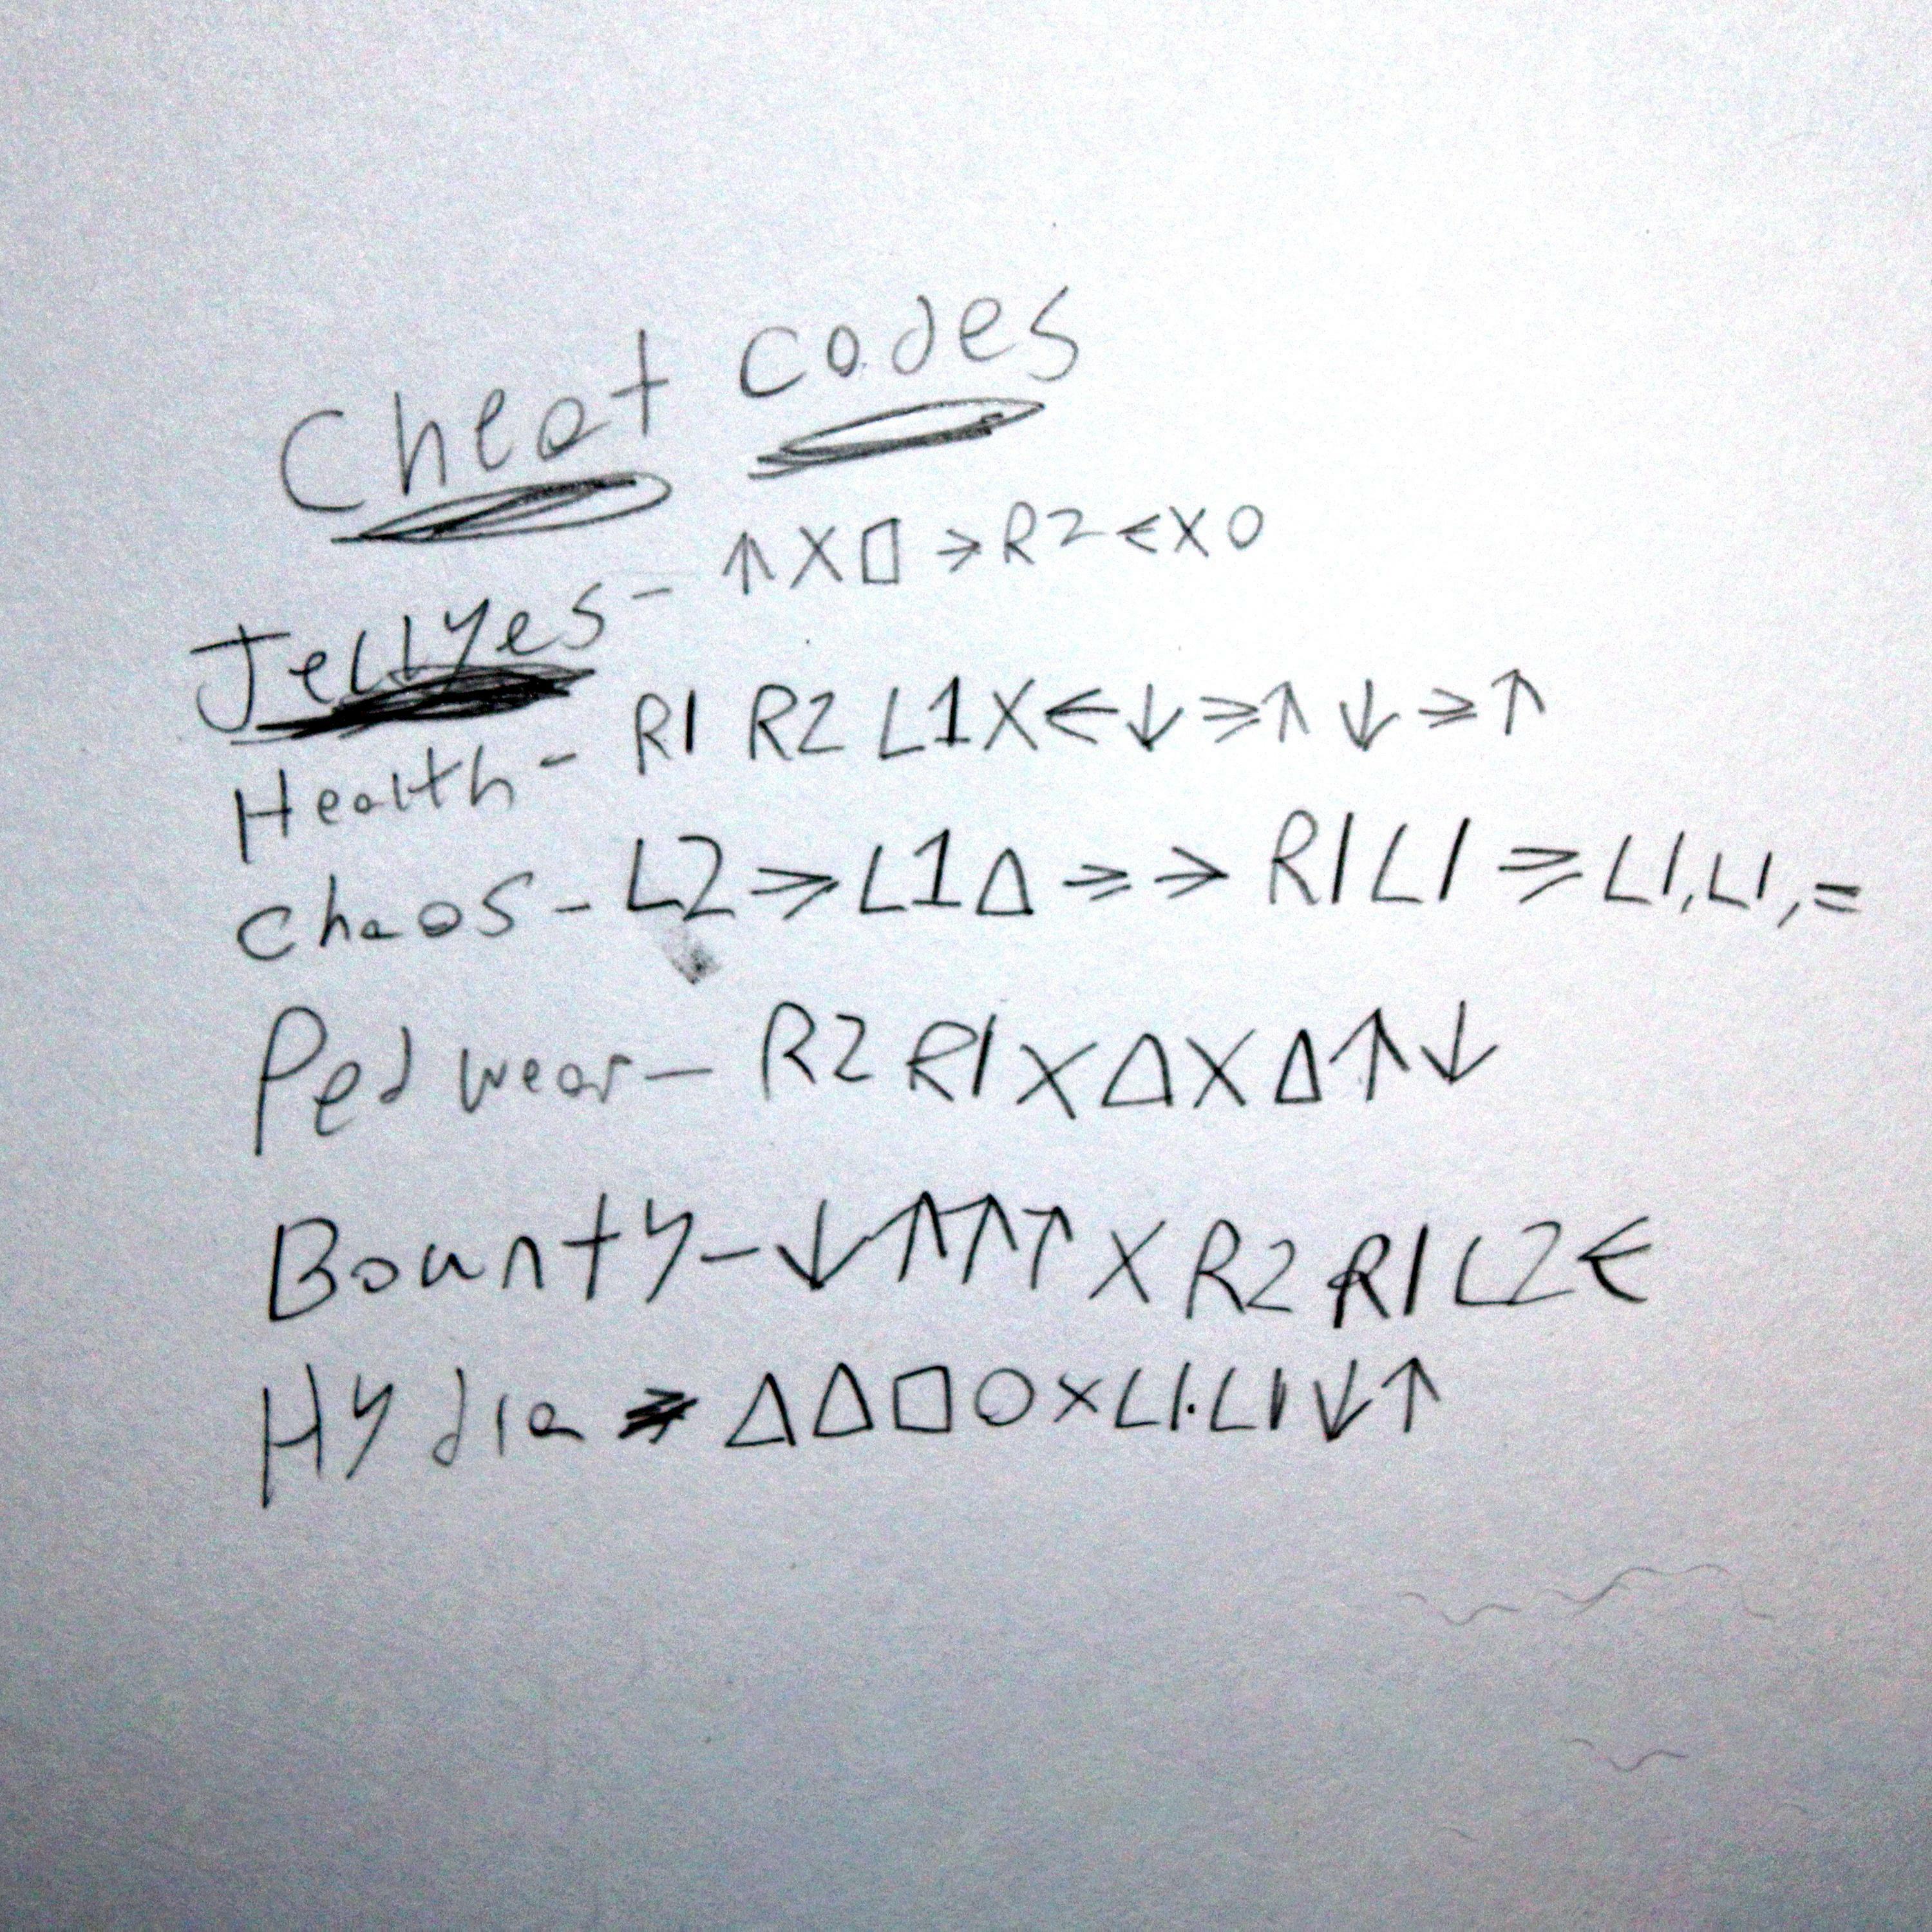 Cheat codes
Jellyes - ↑ X □ → R2 ← X O
Health - R1 R2 L1 X ← ↓ → ↑ ↓ → ↑
chaos - L2 → L1 △ → → R1 L1 → L1, L1, =
Ped wear - R2 R1 X △ X △ ↑ ↓
Bounty - ↓ ↑ ↑ ↑ X R2 R1 L2 ←
Hydia → △ △ □ O X L1. L1 ↓ ↑